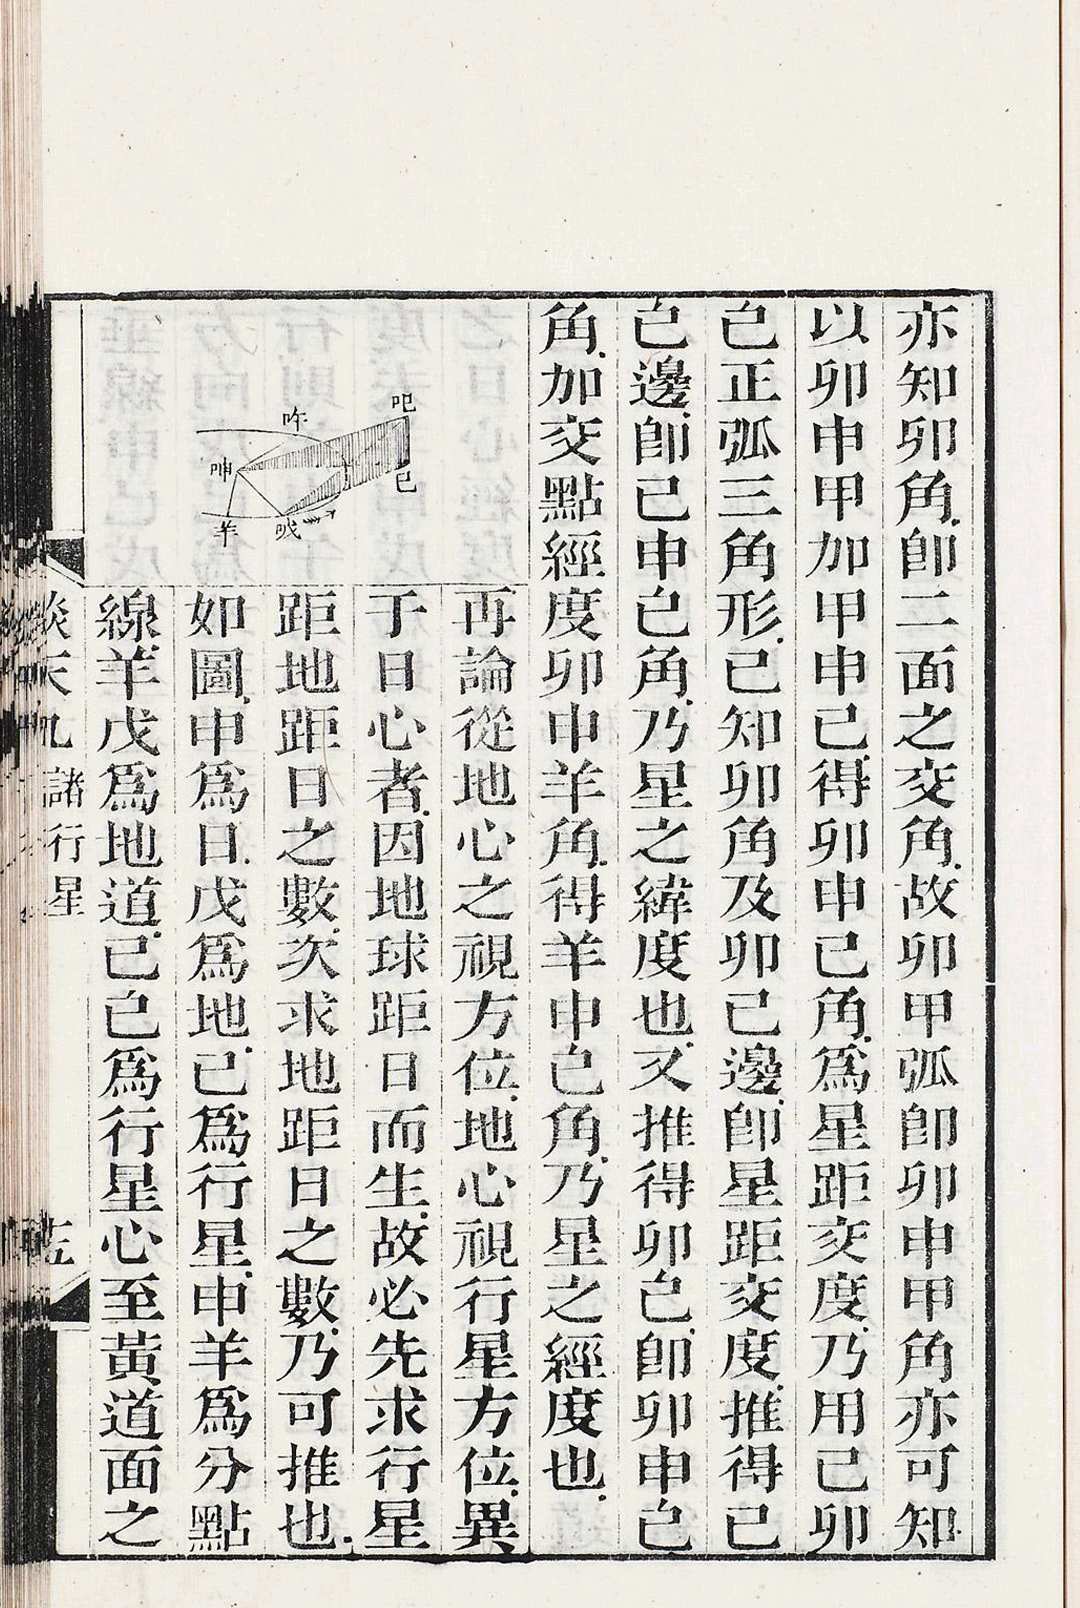 亦知卯角.卽二面之交角.故卯甲弧卽卯申甲角亦可知
以卯申甲加甲申己.得卯申己角.爲星距交度.乃用己卯
巳正弧三角形.已知卯角及卯己邊.卽星距交度.推得己
巳邊.卽己申巳角.乃星之緯度也.又推得卯巳.卽卯申巳
角.加交點經度卯申羊角.得羊申巳角.乃星之經度也.
再論從地心之視方位.地心視行星方位.異
于日心者.因地球距日而生.故必先求行星
距地距日之數.次求地距日之數.乃可推也.
如圖.申爲日.戊爲地.己爲行星.申羊爲分點
線.羊戊爲地道.己巳爲行星心至黃道面之
談天九 諸行星